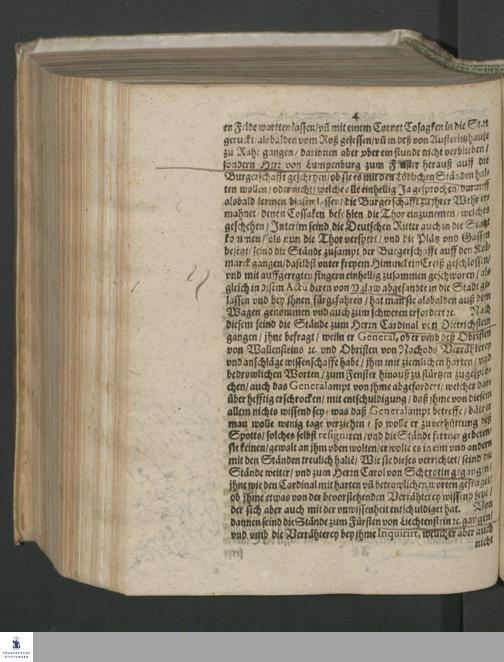 4
en Felde wartten lassen/vñ mit einem Cornet Cosagken in die Stat
geruckt/ alsbalden vom Roß gesessen/vñ in deß von Austerlitzhause
zu Raht gangen/ darinnen aber vber ein stunde nicht verblieben/
sondern Herr von Lumpenburg zum Fenster herauß auff die
Burgerschafft geschryen/ ob sie es mit den Löblichen Ständen hal-
ten wollen/ oder nicht/ welche alle einhellig Ja gesprochen/ darauff
alsbald lermen blasen lassen/ die Burgerschafft zu ihrer Wehr er-
mahnet/ denen Cossaken befehlen die Thor einzunemen/ welches
geschehen/ Interim seind die Deutschen Ritter auch in die Statt
kommen/ als nun die Thor versport/ vnd die Plätz vnd Gassen
besetzt/ seind die Stände zusampt der Burgerschafft auff den Kol-
marck gangen/ daselbst vnter freyem Himmel ein Creiß geschlossen/
vnd mit auffgeregten fingern einhellig zusammen geschworen/ als
gleich in disem Actu diren von Iglaw abgesandte in die Stadt ge-
lassen vnd bey ihnen fürgefahren/ hat man sie alsbalden auß dem
Wagen genommen vnd auch zum schweren erfordert ꝛc. Nach
diesem seind die Stände zum Herrn Cardinal von Dietrichstein
gangen/ ihne befragt/ weiln er General, ob er vmb deß Obristen
von Wallensteins ꝛc. vnd Obristen von Nachods Verrähterey
vnd anschläge wissenschaffe habe/ ihm mit ziemlichen harten/ vnd
bedrowlichen Worten/ zum Fenster hinauß zu stürtzen zugespro-
chen/ auch das Generalampt von ihme abgefordert/ welcher dar-
über hefftig erschrocken/ mit entschuldigung/ daß ihme von diesem
allem nichts wissend sey/ was daß Generalampt betreffe/ bäte er
man wolle wenig tage verziehen/ so wolle er zuverhüttung deß
Spotts/ solches selbst resigniren/ vnd die Stände ferrner gebeten/
sie keinen/gewalt an ihm vben wolten/ er wolte es in ein vnd andern
mit den Ständen treulich halte/ Wie sie dieses verrichtet/ seind die
Stände weiter/ vnd zum Herrn Carol von Scherotin gigangen/
ihne wie den Cardinal mit harten vñ betrowlichen worten gefraget/
ob ihme etwas von der bevorstehenden Verrähterey wissend seye/
der sich aber auch mit der vnwissenheit entschuldiget hat. Von
dannen seind die Stände zum Fürsten von Liechtenstein ꝛc. gangen/
vnd vmb die Verrähterey bey ihme Inquirirt, welcher aber auch
nicht